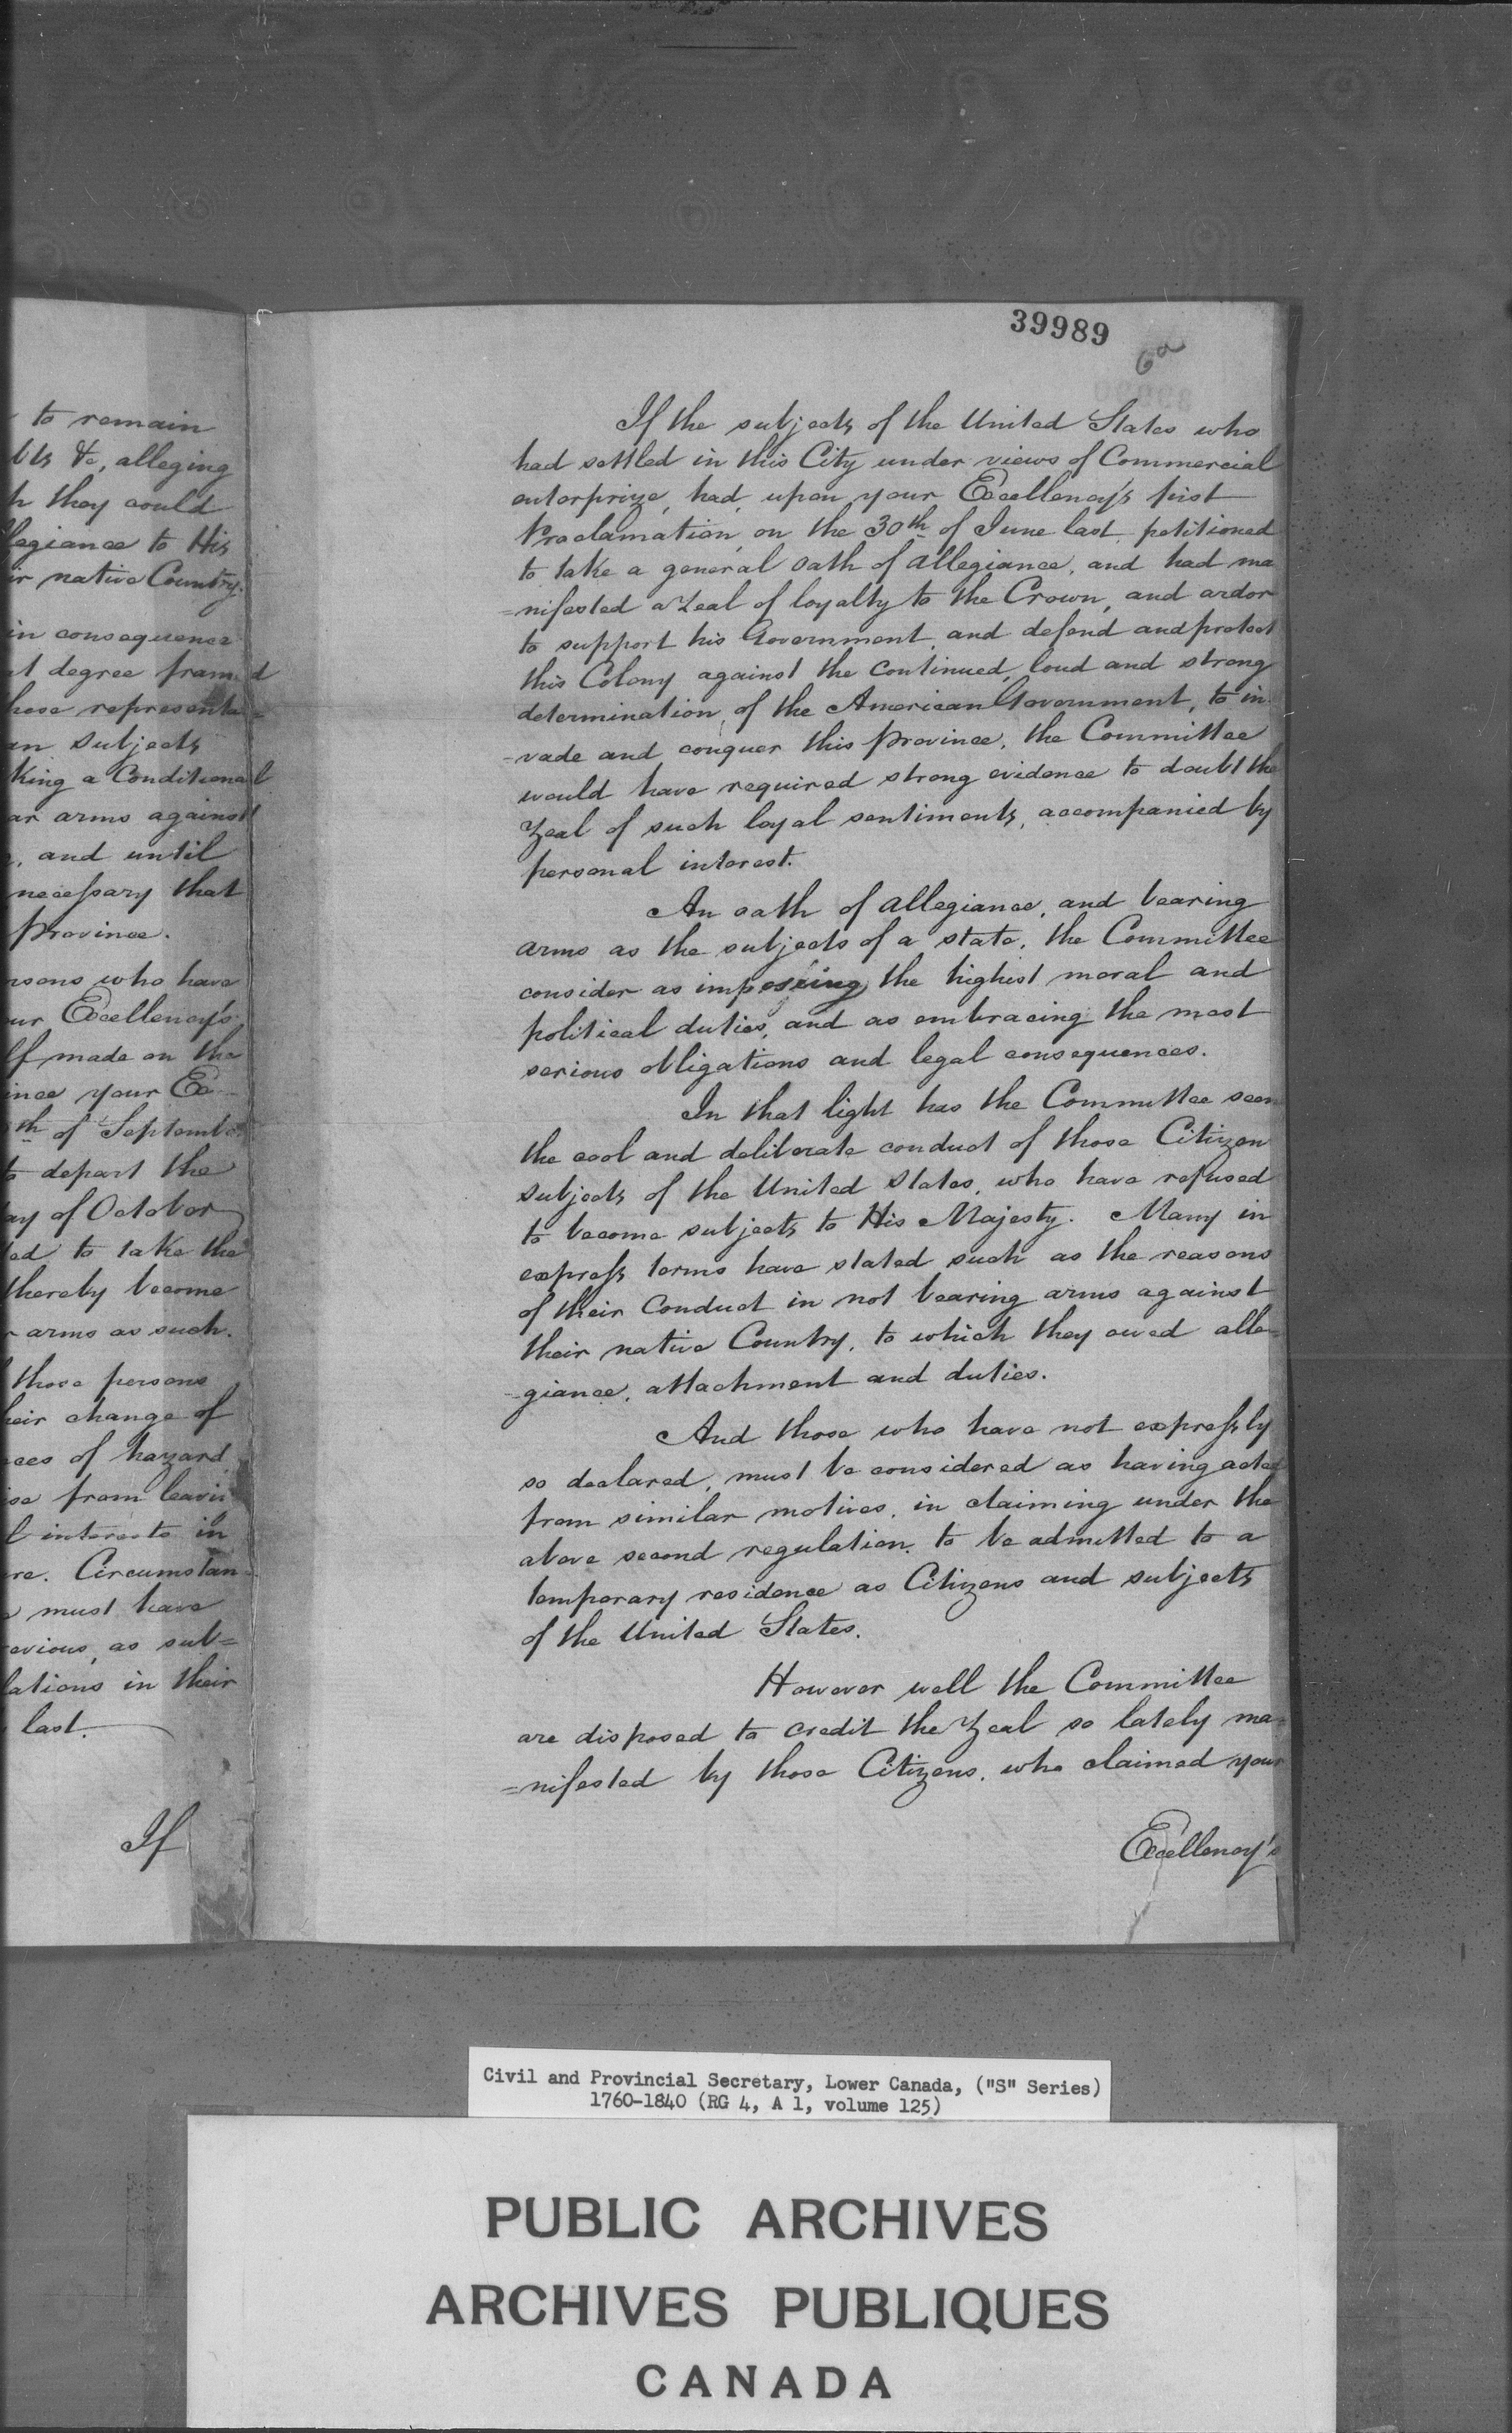 to remain
bts &c, alleging
h they could
legiance to His
ir native Country.
in consequence
at degree framed
hose representa=
an Subjects
king a Conditional
ar arms against
, and until
necessary that
Province.
rsons who have
ur Excellency's
lf made on the
ince your Ex-
th of September
to depart the
ay of October
ed to take the
thereby become
arms as such.
those persons
heir change of
ces of hazard
se from leavin
l interests in
re. Circumstan=
must have
evious, as sub=
lations in their
last.
If
39989
6a
If the subjects of the United States who
had settled in this City under views of Commercial
enterprize, had, upon your Excellency's first
Proclamation, on the 30th of June last, petitioned
to take a general oath of allegiance, and had ma
=nifested a Zeal of loyalty to the Crown, and ardor
to support his Government, and defend and protect
this Colony against the continued, loud and strong
determination, of the American Government, to in
-vade and conquer this province, the Committee
would have required strong evidence to doubt the
Zeal of such loyal sentiments, accompanied by
personal interest.
An oath of allegiance, and bearing
arms as the subjects of a state, the Committee
consider as imposing the highest moral and
political duties, and as embracing the most
serious obligations and legal consequences.
In that light has the Committee seen
the cool and deliberate conduct of those Citizen
subjects of the United States, who have refused
to become subjects to His Majesty. Many in
express terms have stated such as the reasons
of their Conduct in not bearing arms against
their native Country, to which they owed alle=
-giance, attachment and duties.
And those who have not expressly
so declared, must be considered as having acted
from similar motives, in claiming under the
above second regulation, to be admitted to a
temporary residence as Citizens and subjects
of the United States.
However well the Committee
are disposed to credit the Zeal so lately ma=
=nifested by those Citizens, who claimed your
Excellency's
Civil and Provincial Secretary, Lower Canada, ("S" Series)
1760-1840 (RG 4, A 1, volume 125)
PUBLIC ARCHIVES
ARCHIVES PUBLIQUES
CANADA